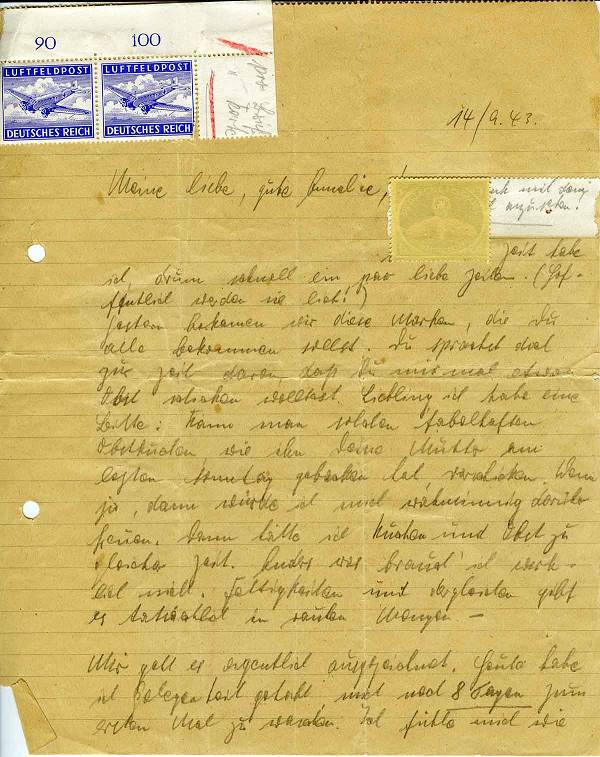 90 100
LUFTFELDPOST LUFTFELDPOST
DEUTSCHES REICH DEUTSCHES REICH
14/9.43.
Meine liebe, gute Annelie,
mit
Zeit habe
ich, drum schnell ein paar liebe Zeilen. (Hof-
fentlich werden sie lieb!)
Gestern bekamen wir diese Marken, die Du
alle bekommen sollst. Du sprachst doch
zur Zeit davon, daß Du mir mal etwas
Obst schicken wolltest. Liebling ich habe eine
Bitte: Kann man solchen fabelhaften
Obstkuchen, wie ihn Deine Mutter am
letzten Sonntag gebacken hat, verschicken. Wenn
ja, dann würde ich mich wahnsinnig darüber
freuen. Dann hätte ich Kuchen und Obst zu
gleicher Zeit. Anders was brauch' ich wirk-
lich nicht. Fettigkeiten und dergleichen gibt
es hier in rauhen Mengen —
Mir geht es eigentlich ausgezeichnet. Heute habe
ich Gelegenheit gehabt, mich nach 8 Tagen zum
ersten Mal zu waschen. Ich fühle mich wie